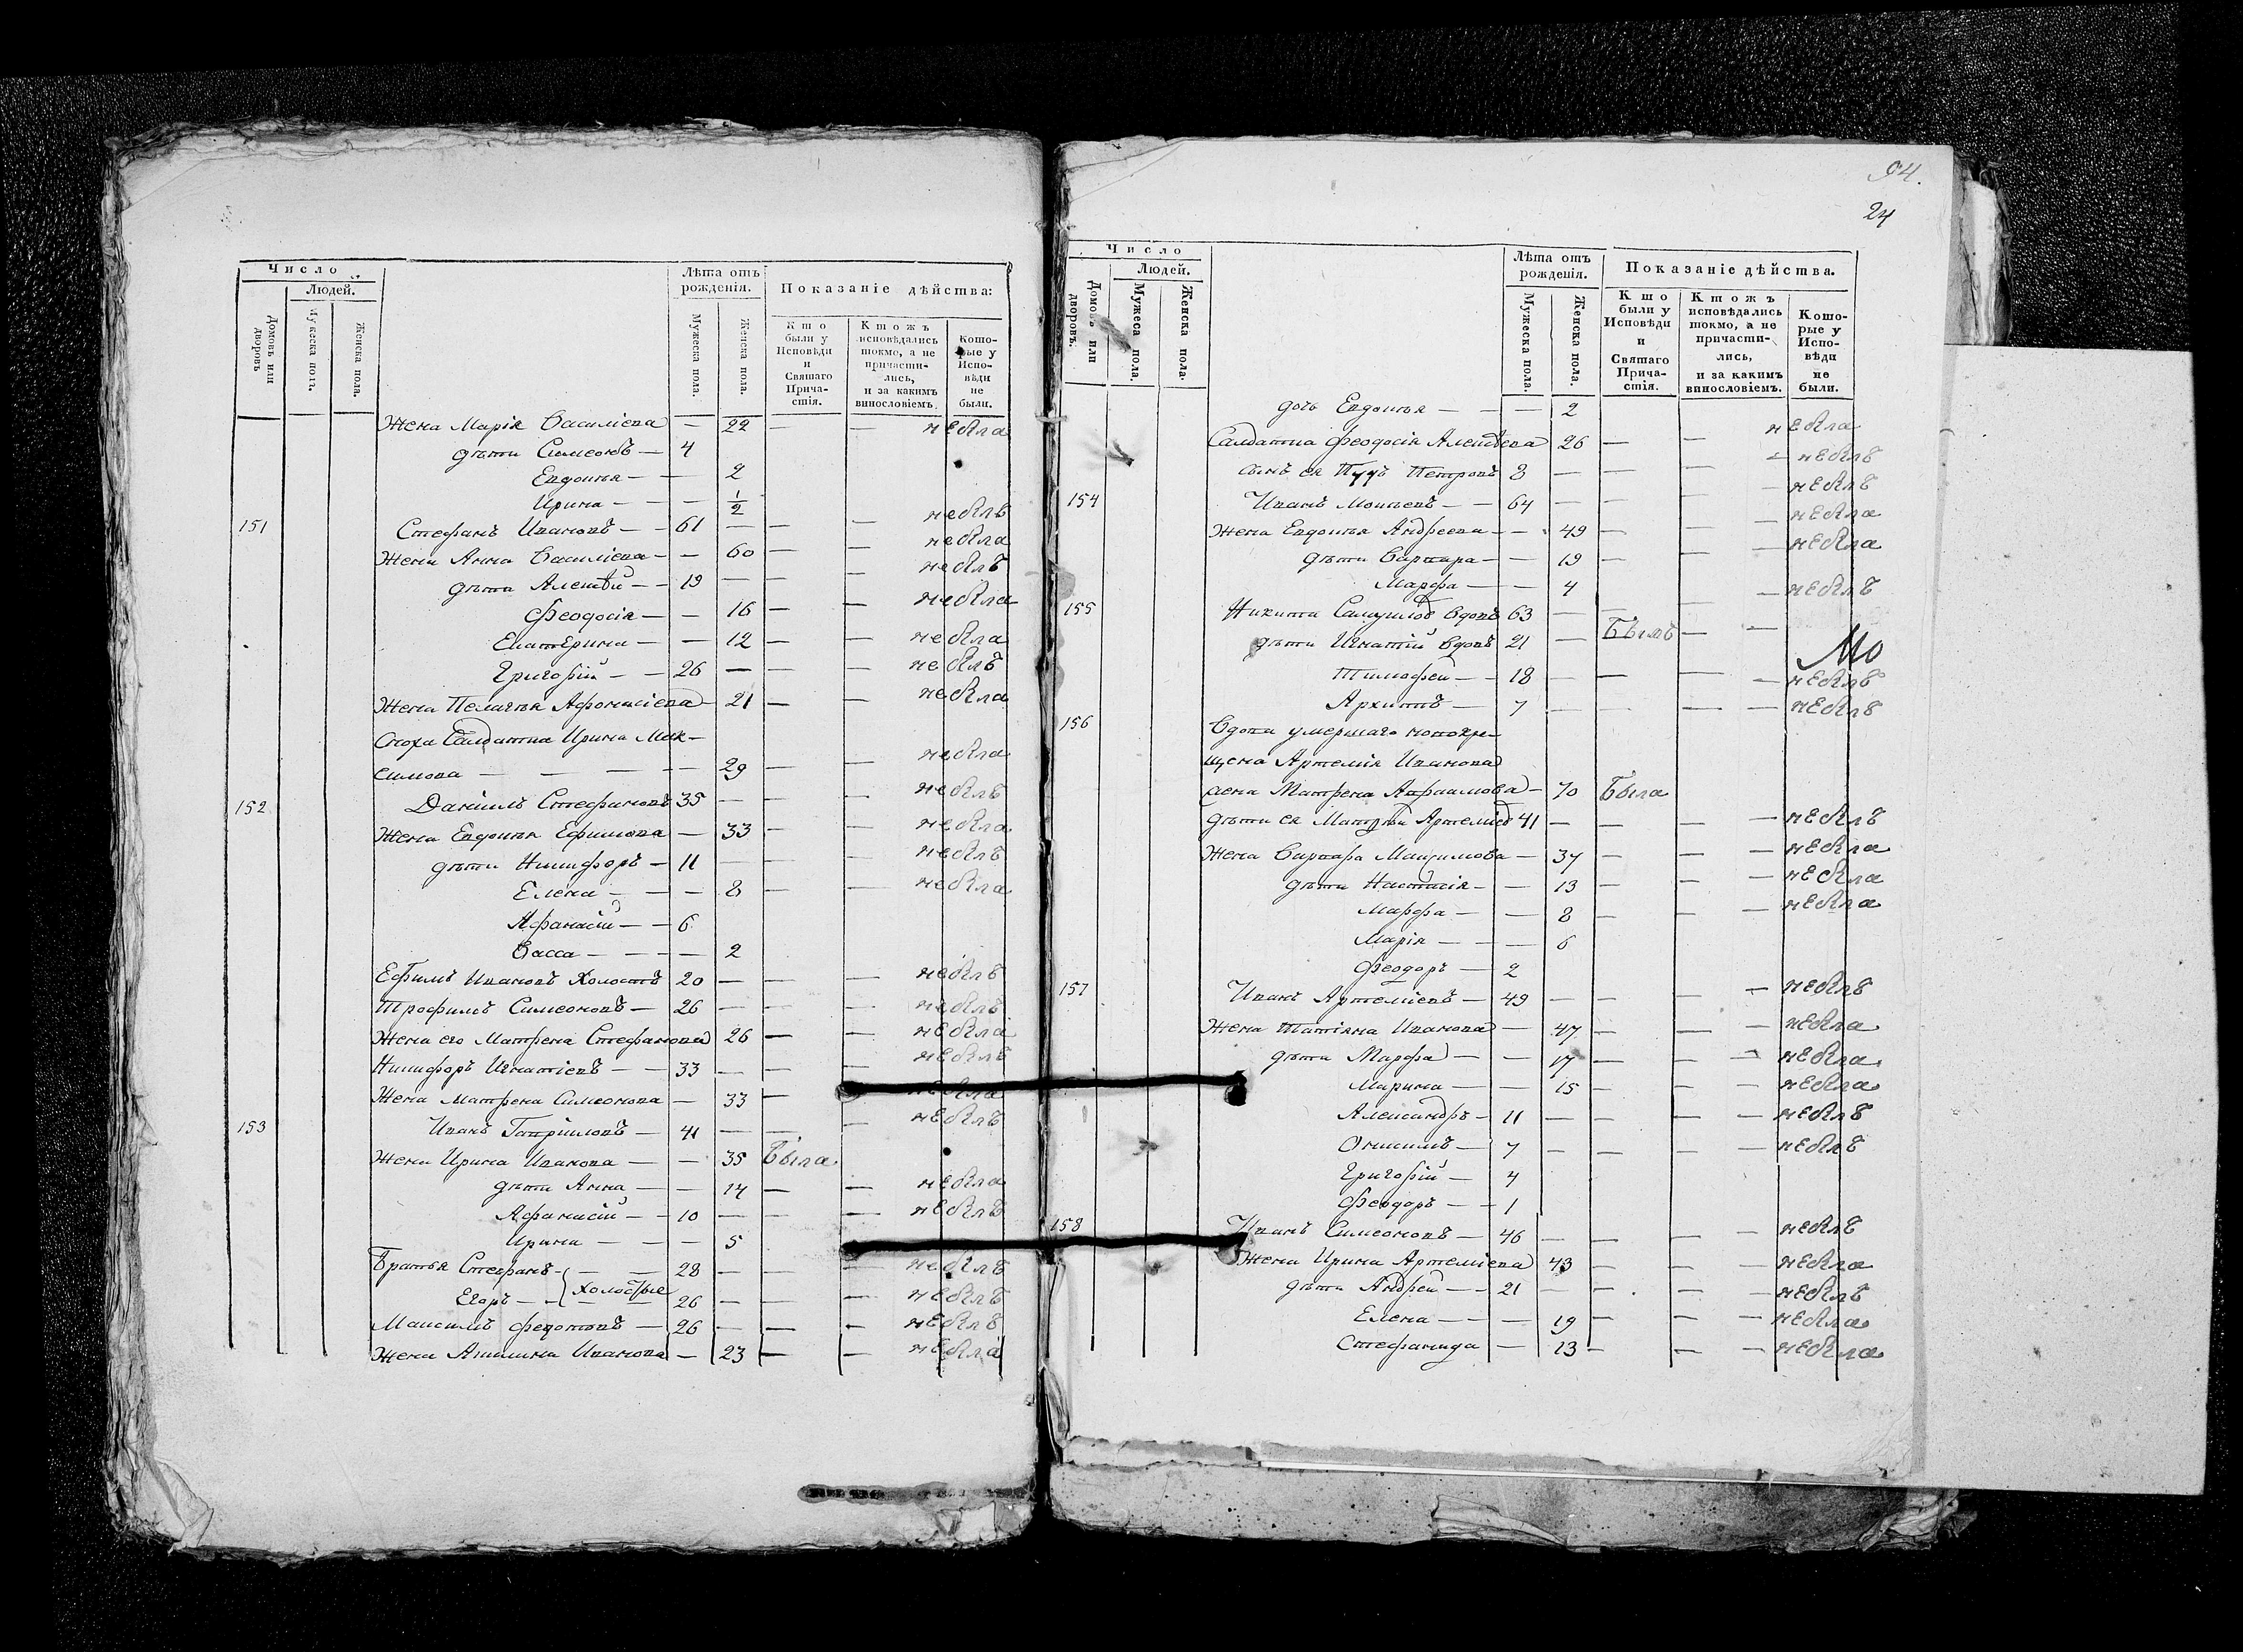 Число
Людей.
Домовъ или дворовъ
Мужеска пола.
Женска пола.
Лѣта отъ рожденія.
Мужеска пола.
Женска пола.
Показаніе дѣйства:
Кто были у Исповѣди и Святаго Причастія.
Ктожъ исповѣдались токмо, а не причастились, и за какимъ винословіемъ.
Которые у Исповѣди не были.
Жена Марія Василіева — 22 — — небыла
дѣти Симеонъ — 4
Евдокія — — 2
Ирина — — — 1/2
151 Стефанъ Ивановъ — — 61 — — — небылъ
Жена Анна Василіева — — 60 — — небыла
дѣти Алексѣй — — 19 — — — небылъ
Феодосія — — 16 — — небыла
Екатерина — — 12 — — небыла
Григорій — — 26 — — — небылъ
Жена Пелагія Афонасіева — 21 — — небыла
Сноха Салдатка Ирина Мак-
симова — — — — 29 — — небыла
152 Даніилъ Стефановъ 35 — — — небылъ
Жена Евдокія Ефимова — 33 — — небыла
дѣти Никифоръ — 11 — — — небылъ
Елена — — — 8 — — небыла
Афанасій — — 6
Васса — — — — 2
Ефимъ Ивановъ Холостъ 20 — — — небылъ
Трофимъ Симеоновъ — 26 — — — небылъ
Жена его Матрена Стефанова 26 — — небыла
Никифоръ Игнатіевъ — — 33 — — — небылъ
Жена Матрена Симеонова — 33 — — небыла
153 Иванъ Гавріиловъ — 41 — — — небылъ
Жена Ирина Иванова — — 35 Была
дѣти Анна — — 14 — — небыла
Афанасій — — 10 — — — небылъ
Ирина — — — 5
Братья Стефанъ — — — 28 — — — небылъ
Егоръ — — Холостые 26 — — — небылъ
Максимъ Федотовъ — 26 — — — небылъ
Жена Акилина Иванова — 23 — — небыла
94.
24
Число
Людей.
Домовъ или дворовъ.
Мужеса пола.
Женска пола.
Лѣта отъ рожденія.
Мужеска пола.
Женска пола.
Показаніе дѣйства.
Кто были у Исповѣди и Святаго Причастія.
Ктожъ исповѣдались токмо, а не причастились, и за какимъ винословіемъ.
Которые у Исповѣди не были.
дочь Евдокія — — — 2
Салдатка Феодосія Алексѣева 26 — — небыла
сынъ ея Тудъ Петровъ 8 — — — небылъ
154 Иванъ Мокіевъ — — 64 — — — небылъ
Жена Евдокія Андреева — — 49 — — небыла
дѣти Варвара — — 19 — — небыла
Марфа — — 4
155 Никита Самуиловъ вдовъ 63 — — — небылъ
дѣти Игнатій вдовъ 21 — Былъ — —
Мо
Тимофей — — 18 — — — небылъ
Архиппъ — 7 — — — небылъ
156 Вдова умершаго новокре-
щена Артемія Иванова
жена Матрена Авраамова — 70 Была
дѣти ея Матвѣй Артеміевъ 41 — — — небылъ
Жена Варвара Максимова — 37 — — небыла
дѣти Настасія — — 13 — — небыла
Марфа — — 8 — — небыла
Марія — — — 6
Феодоръ — 2
157 Иванъ Артеміевъ — 49 — — — небылъ
Жена Татіяна Иванова — 47 — — небыла
дѣти Марфа — — 17 — — небыла
Марина — — 15 — — небыла
Александръ — 11 — — — небылъ
Онисимъ — 7 — — — небылъ
Григорій — 4
Феодоръ — — 1
158 Иванъ Симеоновъ — 46 — — — небылъ
Жена Ирина Артеміева 43 — — небыла
дѣти Андрей — — 21 — — — небылъ
Елена — — — 19 — — небыла
Стефанида — 13 — — небыла